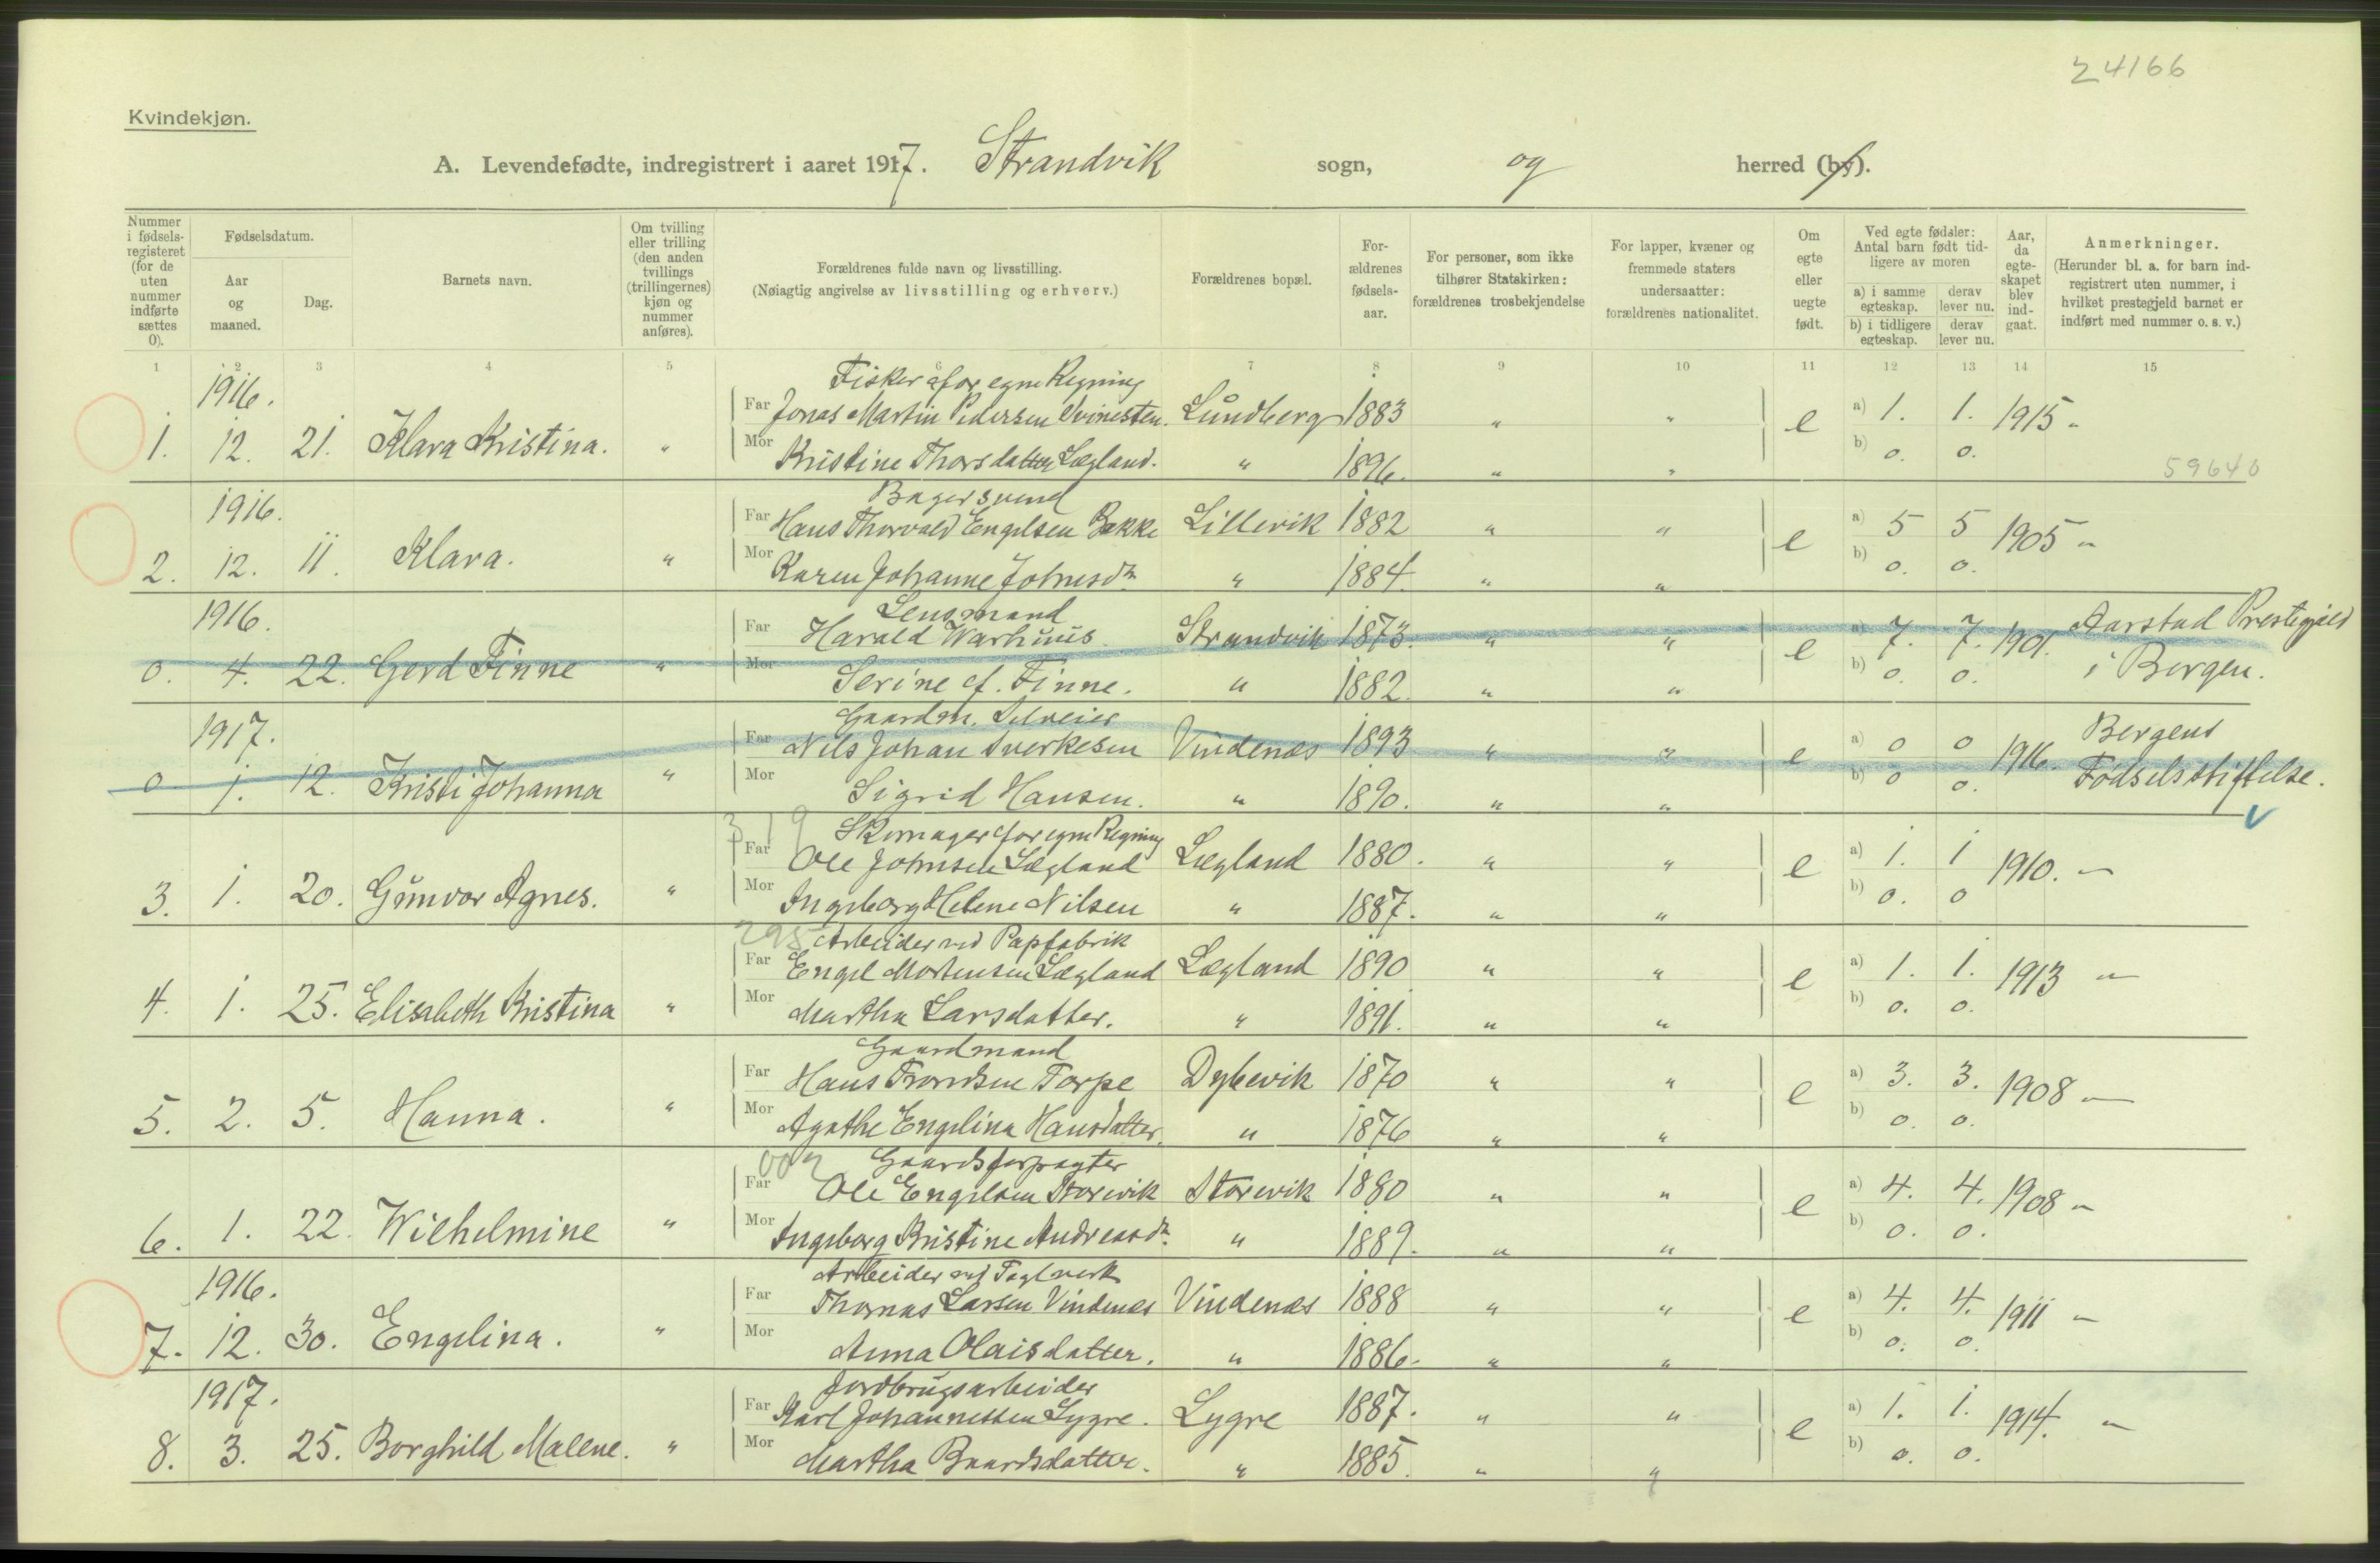 24166
Kvindekjøn.
A. Levendefødte, indregistrert i aaret 1917. Strandvik sogn, og herred (by).
Nummer i fødsels- registeret (for de uten nummer indførte sættes 0).
Fødselsdatum.
Aar og maaned.
Dag.
Barnets navn.
Om tvilling eller trilling (den anden tvillings (trillingernes) kjøn og nummer anføres).
Forældrenes fulde navn og livsstilling.
(Nøiagtig angivelse av livsstilling og erhverv.)
Forældrenes bopæl.
For- ældrenes fødsels- aar.
For personer, som ikke tilhører Statskirken: forældrenes trosbekjendelse
For lapper, kvæner og fremmede staters undersaatter: forældrenes nationalitet.
Om egte eller uegte født.
Ved egte fødsler: Antal barn født tid- ligere av moren
a) i samme egteskap. derav lever nu.
b) i tidligere egteskap. derav lever nu.
Aar, da egte- skapet blev ind- gaat.
Anmerkninger.
(Herunder bl. a. for barn ind- registrert uten nummer, i hvilket prestegjeld barnet er indført med nummer o. s. v.)
1 2 3 4 5 6 7 8 9 10 11 12 13 14 15
1916. Fisker for egne Regning
Far Jonas Martin Pedersen Lundberg 1883 " " a) 1. 1.
1. 12. 21. Klara Kristina. " e 1915 "
Mor Kristine Thorsdatter Lægland. " 1896. " " b) 0. 0.
59640
1916. Bagersvend
Far Hans Thorvald Engelsen Bakke Lillevik 1882 " " a) 5 5
2. 12. 11. Klara. " e 1905 "
Mor Karen Johanne Johnsdtr " 1884. " " b) 0. 0.
1916. Lensmand
Far Harald Warhuus Strandvik 1873. " " a) 7. 7. Aarstad Prestegjeld
0. 4. 22. Gerd Finne " e 1901. i Bergen.
Mor Serine f. Finne. " 1882. " " b) 0. 0.
1917. Gaardm. Selveier
Far Nils Johan Sverkesen Vindenæs 1893 " " a) 0 0 Bergens
0 1. 12. Kristi Johanna " e 1916. Fødselsstiftelse.
Mor Sigrid Hansen. " 1890. " " b) 0 0.
319 Skomager for egne Regning
Far Ole Johnsen Lægland Lægland 1880. " " a) 1. 1
3. 1. 20. Gunvor Agnes. " e 1910. "
Mor Ingeborg Helene Nilsen " 1887. " " b) 0. 0
295 Arbeider ved Papfabrik
Far Engel Mortensen Lægland Lægland 1890 " " a) 1. 1.
4. 1. 25. Elisabeth Kristina " e 1913 "
Mor Martha Larsdatter. " 1891. " " b) 0. 0.
Gaardmand
Far Hans Trondsen Torpe Dybevik 1870 " " a) 3. 3.
5. 2. 5. Hanna. " e 1908 "
Mor Agathe Engelina Hansdatter. " 1876 " " b) 0. 0.
Gaardsforpagter
Far Ole Engelsen Storevik Storevik 1880 " " a) 4. 4.
6. 1. 22. Wilhelmine " e 1908 "
Mor Ingeborg Kristine Andreasdtr. " 1889. " " b) 0. 0.
1916. Arbeider ved Teglverk
Far Thomas Larsen Vindenæs Vindenæs 1888 " " a) 4. 4.
7. 12. 30. Engelina. " e 1911 "
Mor Anna Olaisdatter. " 1886. " " b) 0. 0.
1917. Jordbrugsarbeider
Far Karl Johannessen Lygre. Lygre 1887. " " a) 1. 1.
8. 3. 25. Borghild Malene. " e 1914. "
Mor Martha Baardsdatter. " 1885. " " b) 0. 0.